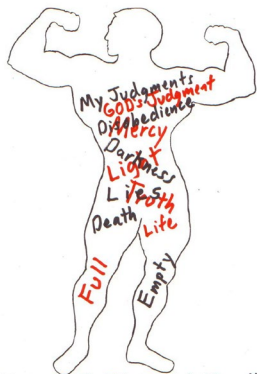 My Judgments
GOD's Judgment
Disobedience
Mercy
Darkness
Light
Lies
Truth
Death
Life
Full
Empty